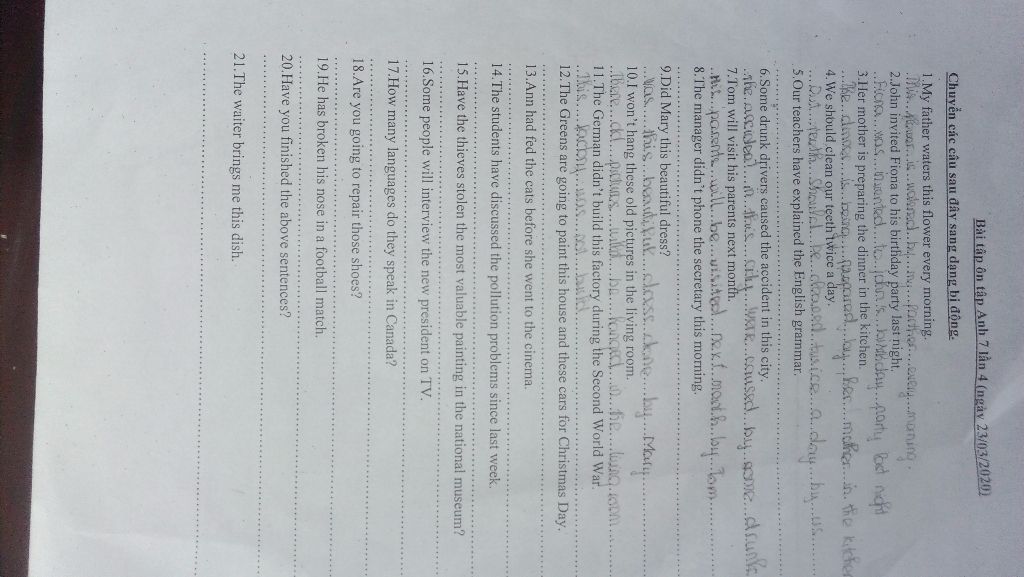 Bài tập ôn tập Anh 7 lần 4 (ngày 23/03/2020)
Chuyển các câu sau đây sang dạng bị động.
1.My father waters this flower every morning.
This flower is watered by my father every morning
2.John invited Fiona to his birthday party last night.
Fiona was invented to john's birthday party last night
3.Her mother is preparing the dinner in the kitchen.
The dinner is being prepared by her mother in the kitchen
4.We should clean our teeth twice a day.
Our teeth should be cleaned twice a day by us
5.Our teachers have explained the English grammar.
6.Some drunk drivers caused the accident in this city.
The accident in this city were caused by some drunk
7.Tom will visit his parents next month.
His parents will be visited next month by Tom
8.The manager didn't phone the secretary this morning.
9.Did Mary this beautiful dress?
Was this beautiful done by Mary
10.I won't hang these old pictures in the living room.
These old pictures will be in the living room
11.The German didn't build this factory during the Second World War.
This factory was not
12.The Greens are going to paint this house and these cars for Christmas Day.
13.Ann had fed the cats before she went to the cinema.
14.The students have discussed the pollution problems since last week.
15.Have the thieves stolen the most valuable painting in the national museum?
16.Some people will interview the new president on TV.
17.How many languages do they speak in Canada?
18.Are you going to repair those shoes?
19.He has broken his nose in a football match.
20.Have you finished the above sentences?
21.The waiter brings me this dish.